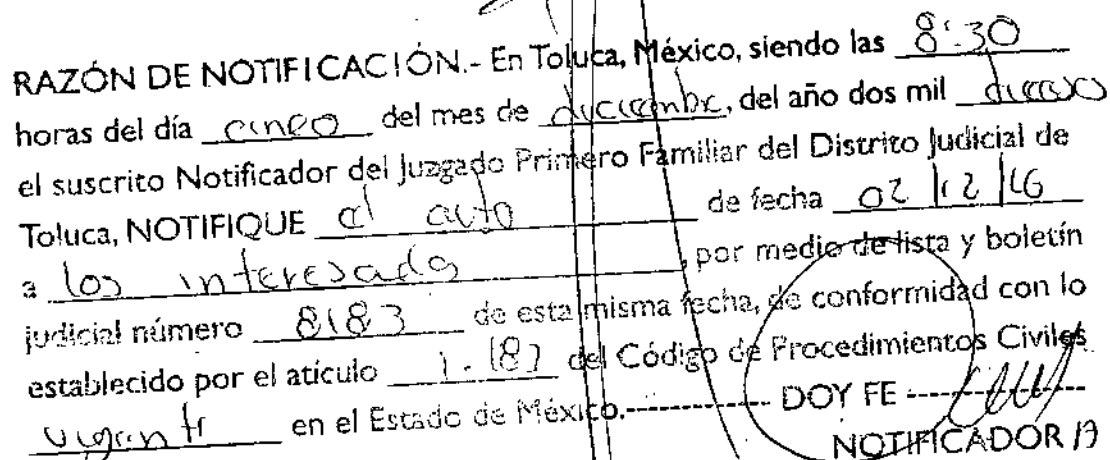 RAZÓN DE NOTIFICACIÓN.- En Toluca, México, siendo las 8:30
horas del día cinco del mes de diciembre, del año dos mil
el suscrito Notificador del Juzgado Primero Familiar del Distrito Judicial de
Toluca, NOTIFIQUE el auto de fecha 02/12/16
a los interesados, por medio de lista y boletín
judicial número 8183 de esta misma fecha, de conformidad con lo
establecido por el atículo 1.182 del Código de Procedimientos Civiles
vigente en el Estado de México.------------ DOY FE ------------
NOTIFICADOR